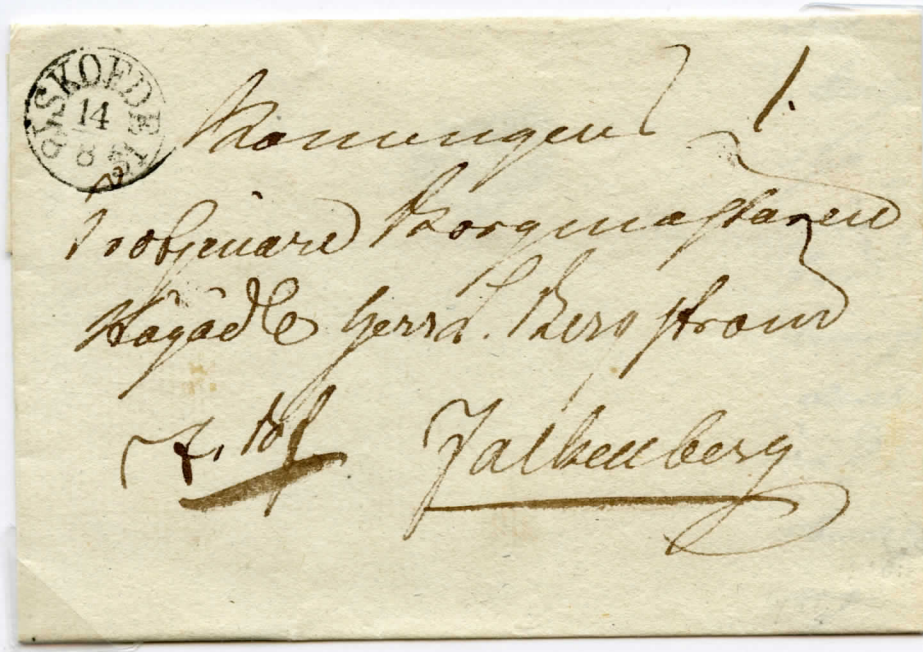 SKOFDE
14
8
Konungens 1.
Trotjenare Borgmästaren
Högädle Herr Bergstrand
Falkenberg